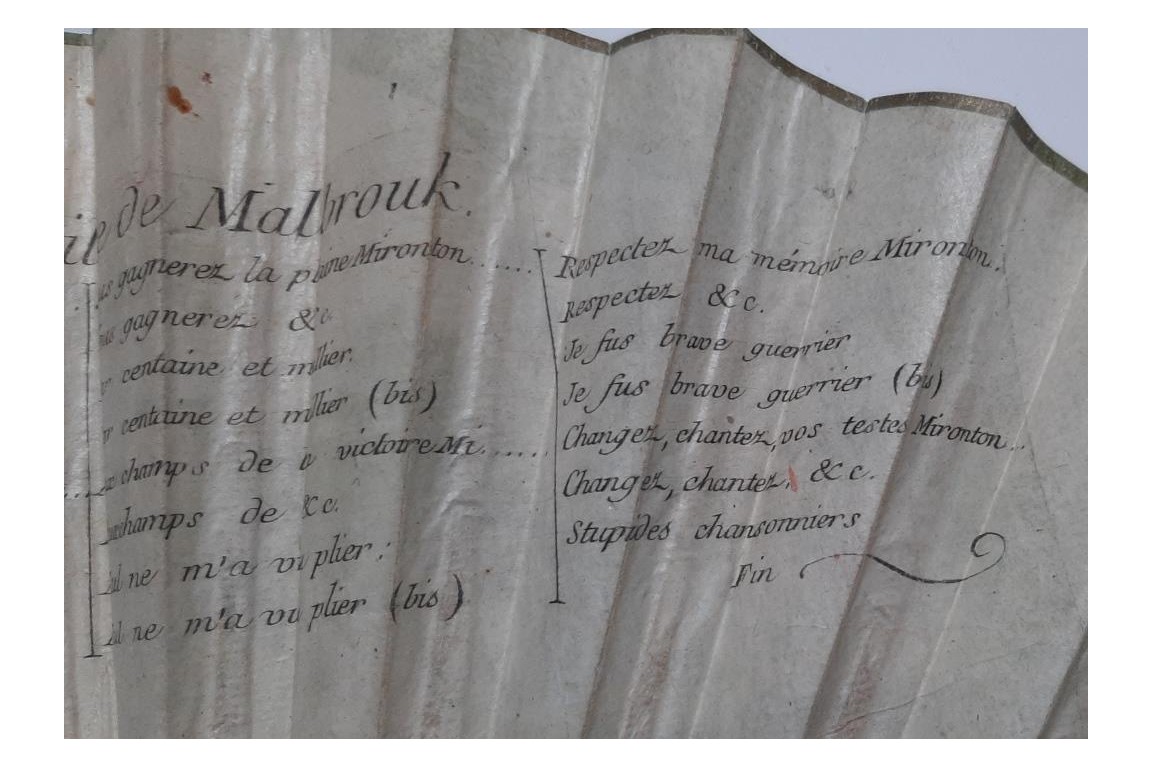 de Malbrouk.
gagnerez la plaine Mironton......
gagnerez &c
centaine et millier.
centaine et millier (bis)
champs de victoire Mi......
champs de &c.
ne m'a vu plier :
ne m'a vu plier (bis)
Respectez ma mémoire Mironton..
Respectez &c.
Je fus brave guerrier
Je fus brave guerrier (bis)
Changez, chantez, vos testes Mironton...
Changez, chantez, &c.
Stupides chansonniers
Fin